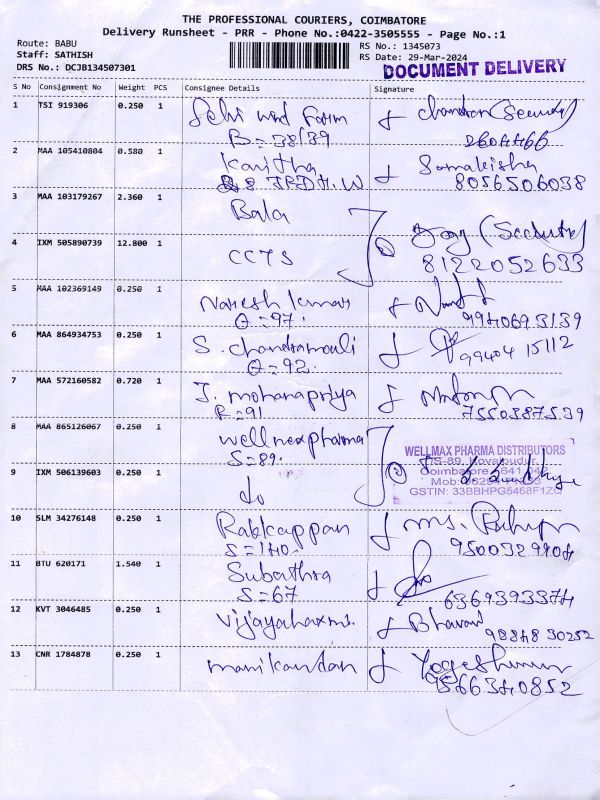 THE PROFESSIONAL COURIERS, COIMBATORE
Delivery Runsheet - PRR - Phone No.:0422-3505555 - Page No.:1
Route: BABU
Staff: SATHISH
DRS No.: DCJB134507301
RS No.: 1345073
RS Date: 29-Mar-2024
DOCUMENT DELIVERY
S No Consignment No Weight PCS Consignee Details Signature
1 TSI 919306 0.250 1 wind Farm Chandran (Security)
B = 38/39
2 MAA 105410804 0.580 1 Kavitha
8056506038
3 MAA 103179267 2.360 1 Bala
4 IXM 505890739 12.800 1 CCTS (Security)
8122052633
5 MAA 102369149 0.250 1 Naresh kumar
Q = 97. 9940693139
6 MAA 864934753 0.250 1 S. chandramouli 99404 15112
Q = 92.
7 MAA 572160582 0.720 1 J. mohanapriya
R = 91 7550387539
8 MAA 865126067 0.250 1 wellnexpharma
S = 89.
WELLMAX PHARMA DISTRIBUTORS
9 IXM 506139603 0.250 1 do
GSTIN: 33BBHPG5468F1ZG
10 SLM 34276148 0.250 1 Rakkappan ms.
S = 140. 9500329904
11 BTU 620171 1.540 1 Subathra
S = 67 6369393374
12 KVT 3046485 0.250 1 Vijayalaxmi. Bhavani
98848 30252
13 CNR 1784878 0.250 1 manikandan
9566340852